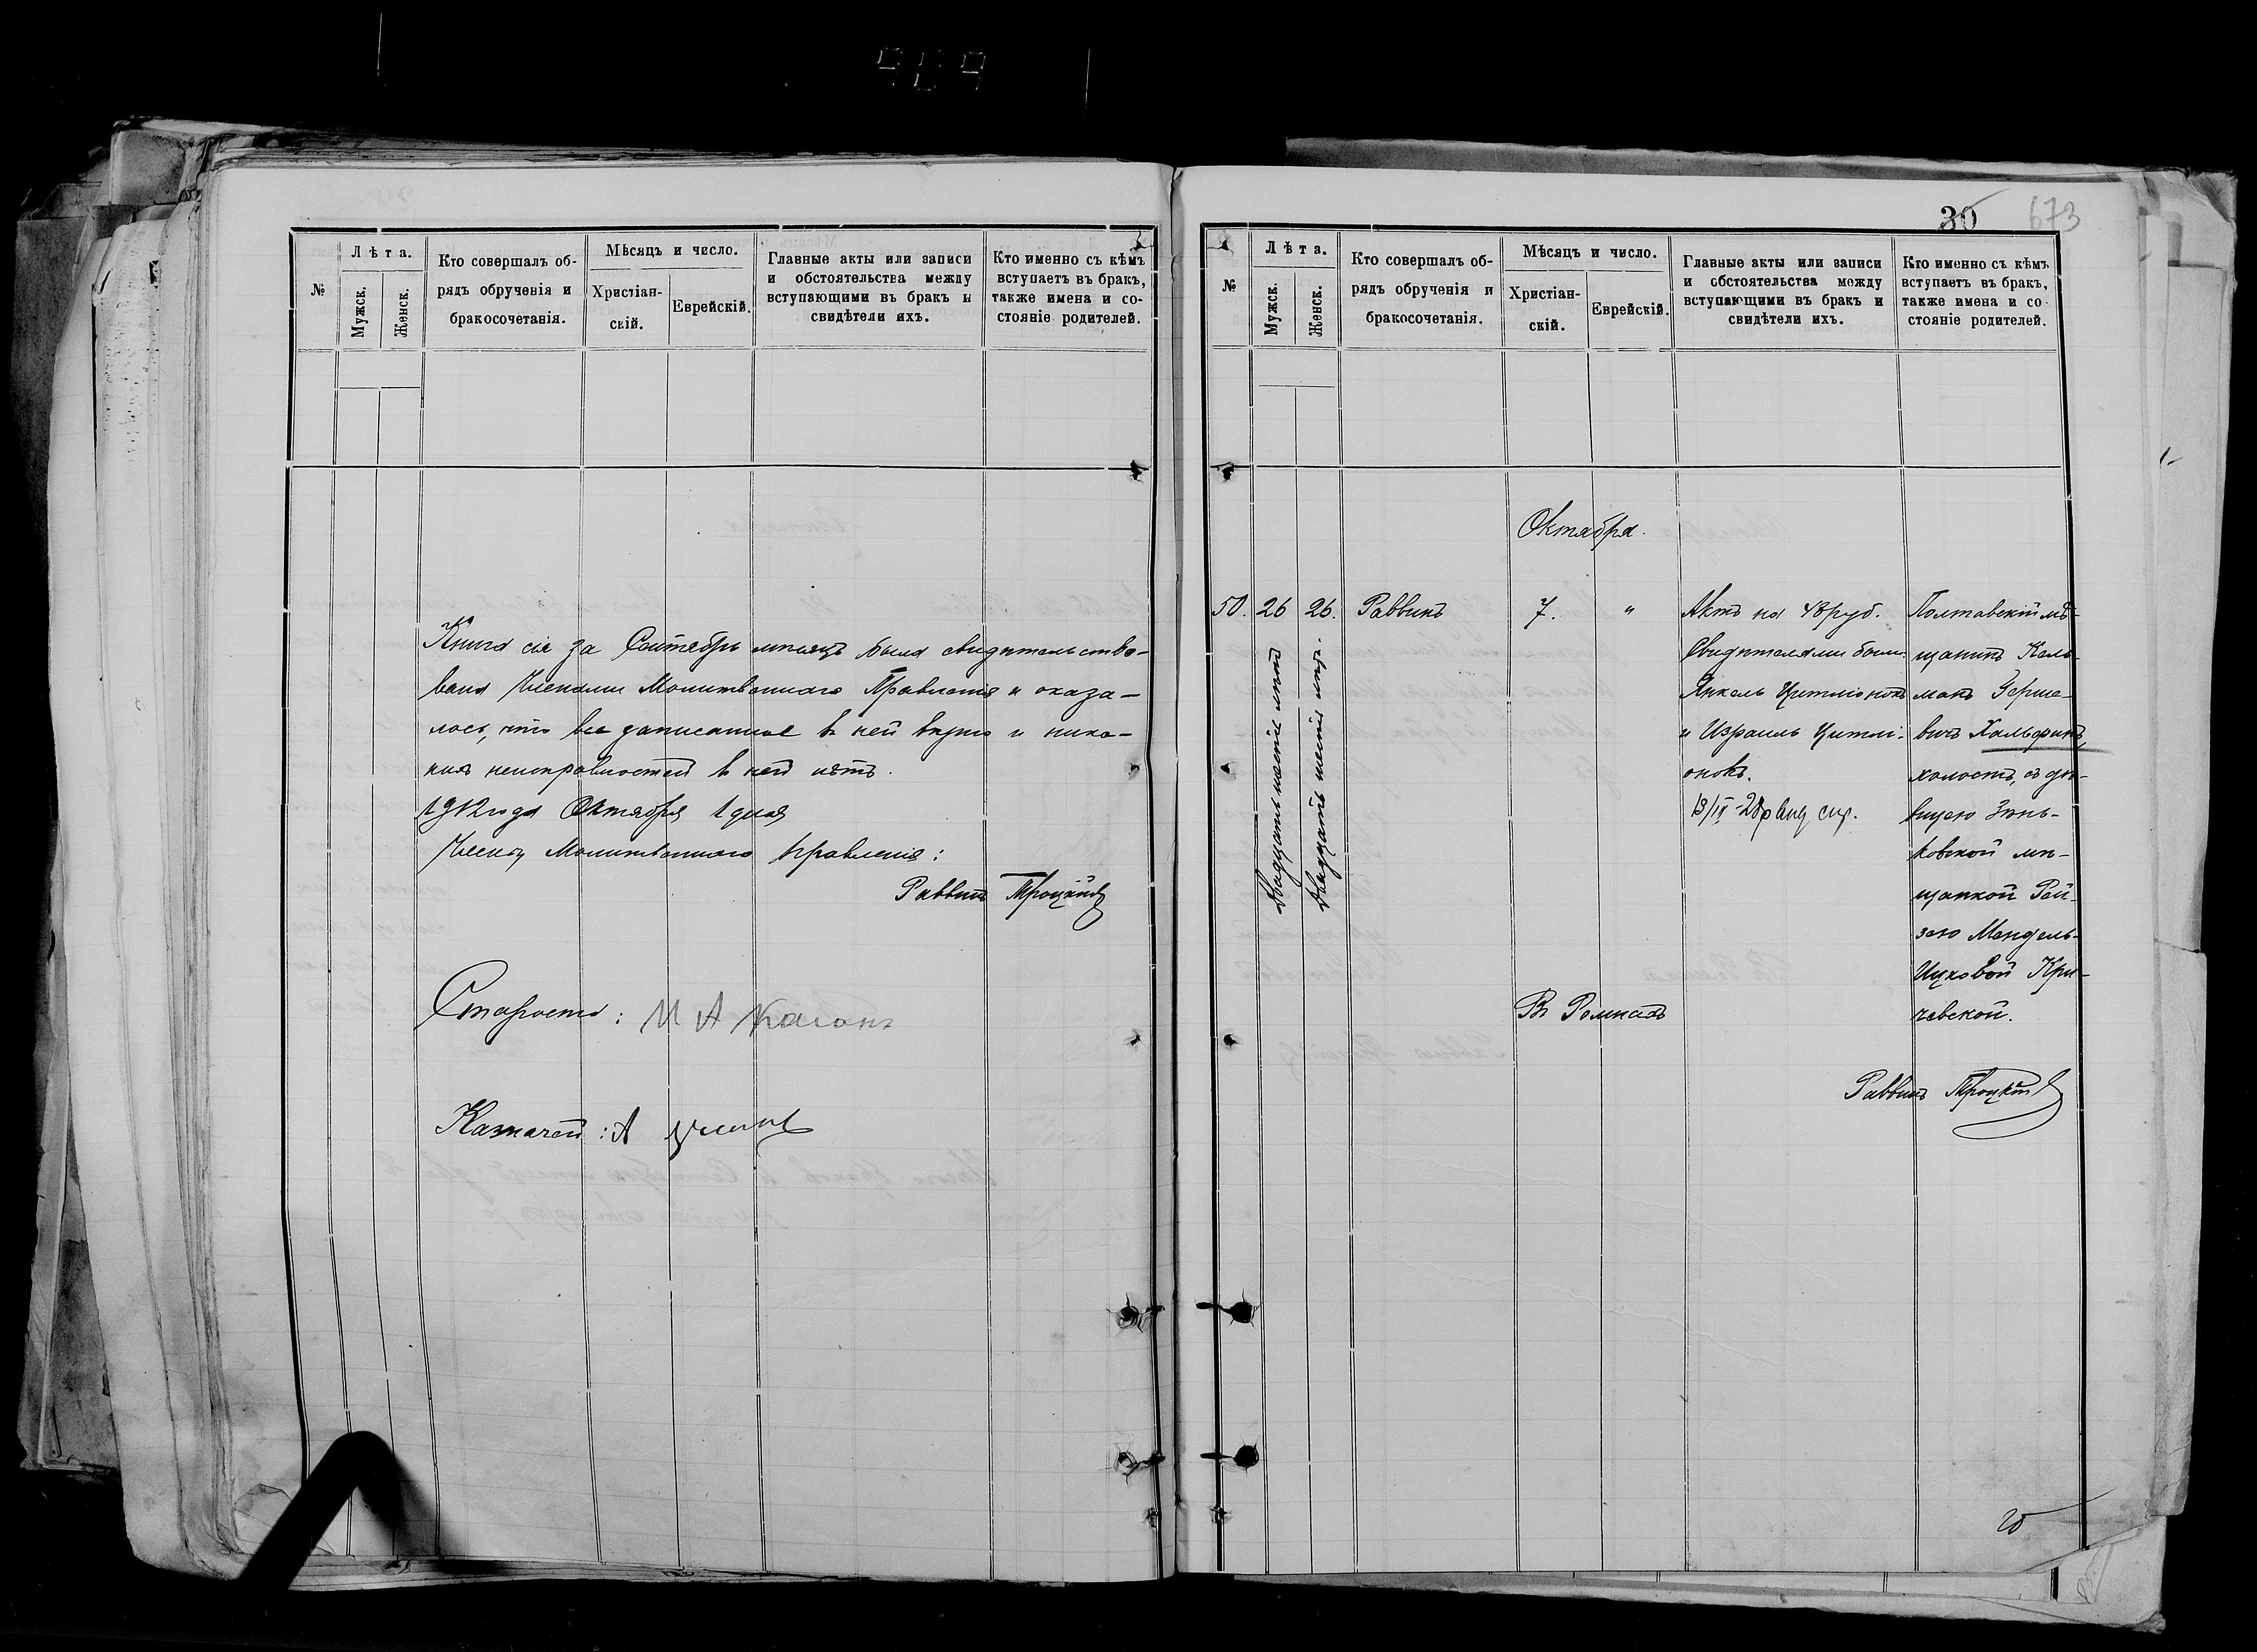 Лѣта.
Мѣсяцъ и число.
№
Мужск.
Женск.
Кто совершалъ об-
рядъ обрученія и
бракосочетанія.
Христіан-
скій.
Еврейскій.
Главные акты или записи
и обстоятельства между
вступающими въ бракъ и
свидѣтели ихъ.
Кто именно съ кѣмъ
вступаетъ въ бракъ,
также имена и со-
стояніе родителей.
Книга сія за Сентябрь мѣсяцъ была свидѣтельство-
вана Членами Молитвеннаго Правленія и оказа-
лось, что все записанное въ ней вѣрно и ника-
кихъ неисправностей въ ней нѣтъ.
1912 года Октября 1 дня
Члены Молитвеннаго Правленія:
Раввинъ Троцкій
Староста: М А Каганъ
Казначей: А
30 673
Лѣта.
Мѣсяцъ и число.
№
Мужск.
Женск.
Кто совершалъ об-
рядъ обрученія и
бракосочетанія.
Христіан-
скій.
Еврейскій.
Главные акты или записи
и обстоятельства между
вступающими въ бракъ и
свидѣтели ихъ.
Кто именно съ кѣмъ
вступаетъ въ бракъ,
также имена и со-
стояніе родителей.
Октября.
50. 26 26.
Двадцать шесть лѣтъ
Двадцать шесть лѣт.
Раввинъ
7. "
Въ Ромнахъ
Актъ на 48 руб.
Свидѣтелями были:
Янкель Цитліонокъ
и Израиль Цитлі-
онокъ.
Полтавскій мѣ-
щанинъ Каль-
манъ Герше-
вичъ Хальфинъ,
холостъ, съ дѣ-
вицею Зѣнь-
ковской мѣ-
щанкой Рей-
зею Мендель-
Ицковой Кри-
чевской.
Раввинъ Троцкій